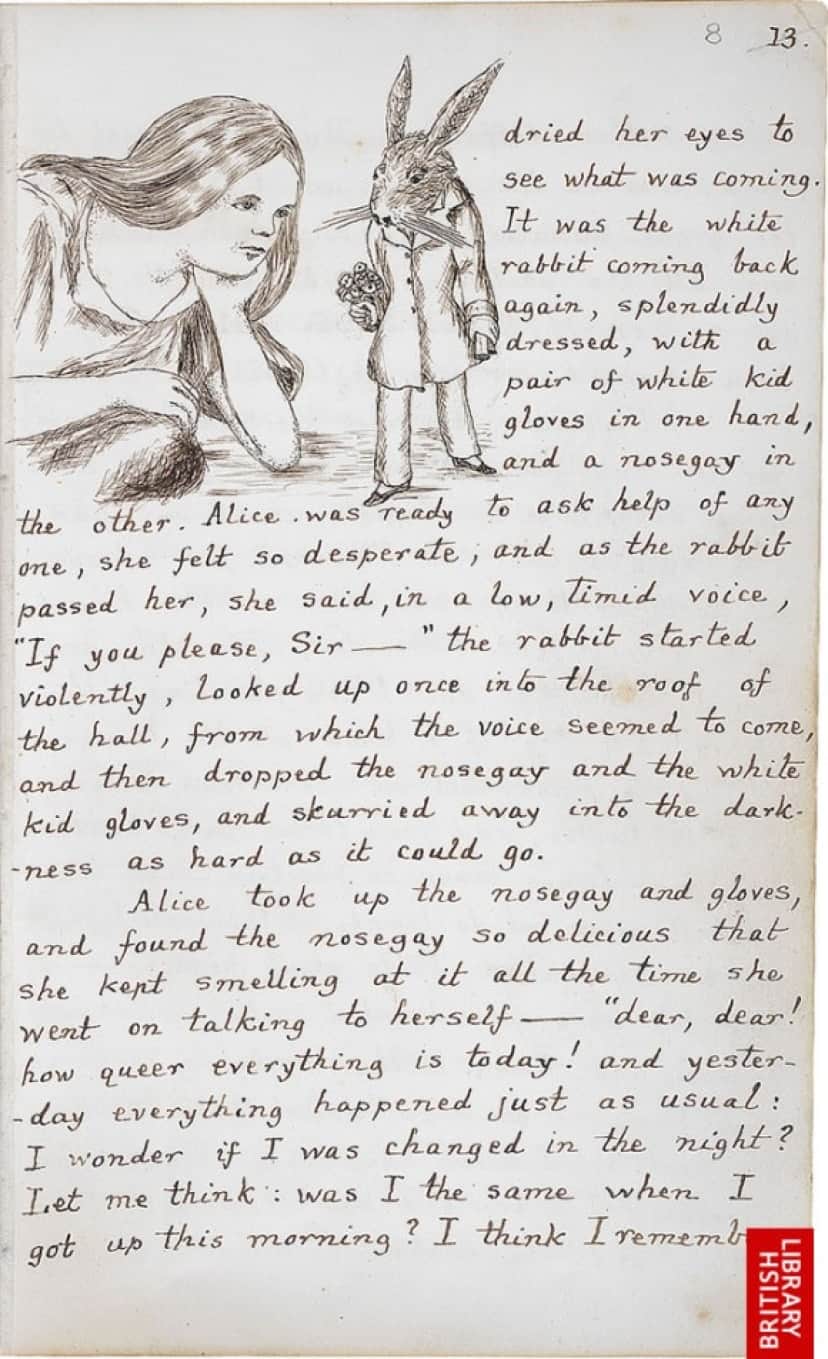 8 13.
dried her eyes to
see what was coming.
It was the white
rabbit coming back
again, splendidly
dressed, with a
pair of white kid
gloves in one hand,
and a nosegay in
the other. Alice was ready to ask help of any
one, she felt so desperate, and as the rabbit
passed her, she said, in a low, timid voice,
"If you please, Sir—" the rabbit started
violently, looked up once into the roof of
the hall, from which the voice seemed to come,
and then dropped the nosegay and the white
kid gloves, and skurried away into the dark-
-ness as hard as it could go.
Alice took up the nosegay and gloves,
and found the nosegay so delicious that
she kept smelling at it all the time she
went on talking to herself— "dear, dear!
how queer everything is today! and yester-
-day everything happened just as usual:
I wonder if I was changed in the night?
Let me think: was I the same when I
got up this morning? I think I rememb
BRITISH
LIBRARY